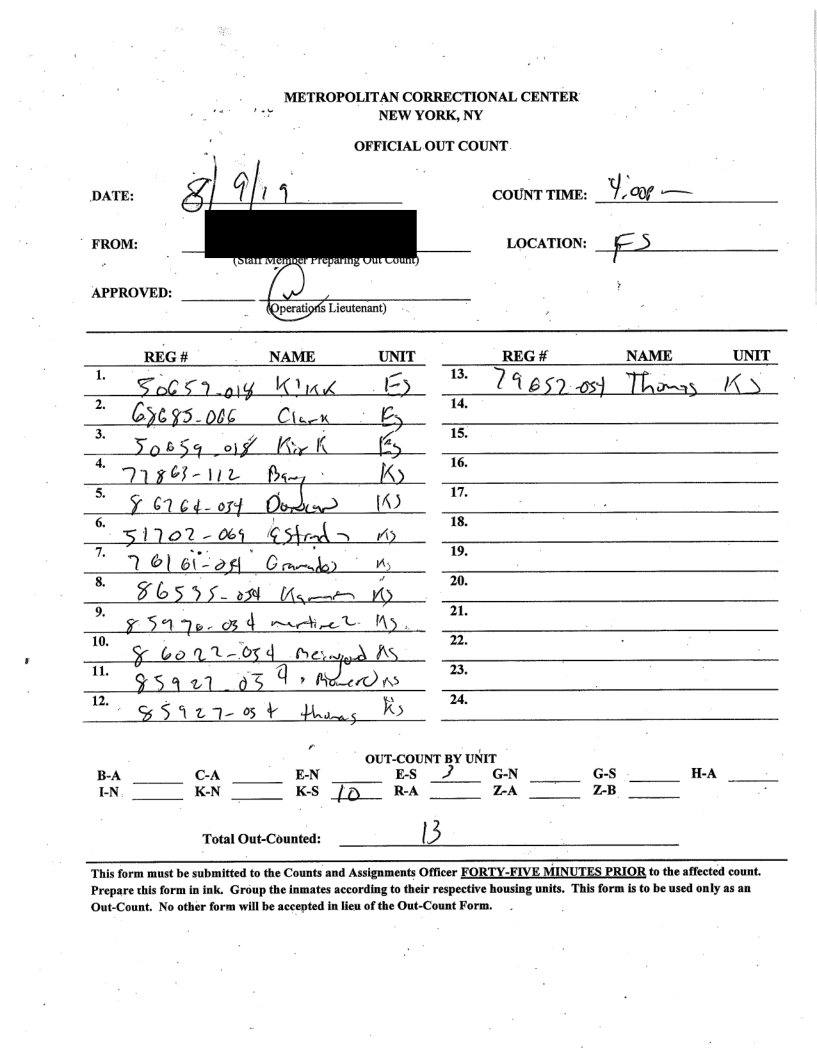 METROPOLITAN CORRECTIONAL CENTER
NEW YORK, NY
OFFICIAL OUT COUNT
DATE: 8/9/19 COUNT TIME: 4:00P
FROM: LOCATION: FS
(Staff Member Preparing Out Count)
APPROVED:
(Operations Lieutenant)
REG # NAME UNIT REG # NAME UNIT
1. 50659-018 Kirk ES 13. 79652-054 Thomas KS
2. 68685-066 Clark ES 14.
3. 50659-018 Kirk ES 15.
4. 77863-112 KS 16.
5. 86764-054 KS 17.
6. 51702-069 Estrada KS 18.
7. 76161-054 Granados KS 19.
8. 86535-054 KS 20.
9. 85976-054 martinez KS. 21.
10. 86022-054 KS 22.
11. 85927-054 KS 23.
12. 85927-054 thomas KS 24.
OUT-COUNT BY UNIT
B-A C-A E-N E-S 3 G-N G-S H-A
I-N K-N K-S 10 R-A Z-A Z-B
Total Out-Counted: 13
This form must be submitted to the Counts and Assignments Officer FORTY-FIVE MINUTES PRIOR to the affected count.
Prepare this form in ink. Group the inmates according to their respective housing units. This form is to be used only as an
Out-Count. No other form will be accepted in lieu of the Out-Count Form.